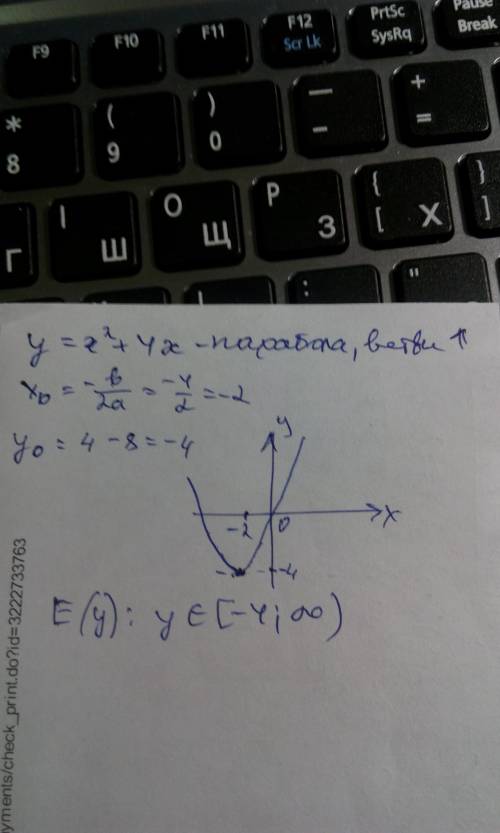 F9 F10 F11 F12 PrtSc Pause
Scr Lk SysRq Break
* ( ) — +
8 9 0 - =
Г Ш O Щ P З { [ Х } ]
I : "
y = x² + 4x - парабола, ветви ↑
x₀ = -b/2a = -4/2 = -2
y₀ = 4 - 8 = -4
y
-2 0 x
-4
E(y): y ∈ [-4; ∞)
yments/check_print.do?id=3222733763